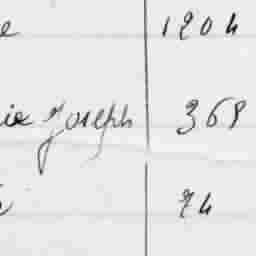 e 1204
ie Joseph 369
74